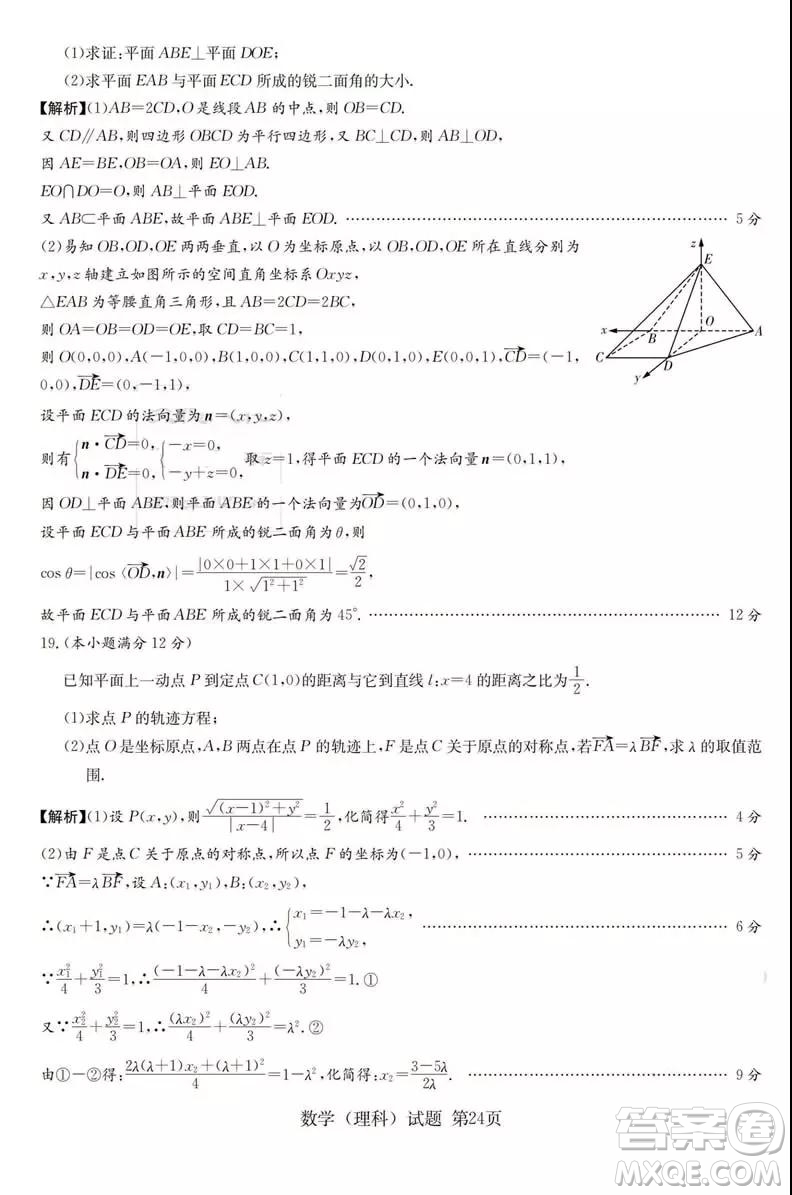 (1)求证:平面 ABE⊥平面 DOE;
(2)求平面 EAB 与平面 ECD 所成的锐二面角的大小.
【解析】(1)AB=2CD,O 是线段 AB 的中点,则 OB=CD.
又 CD∥AB,则四边形 OBCD 为平行四边形,又 BC⊥CD,则 AB⊥OD,
因 AE=BE,OB=OA,则 EO⊥AB.
EO∩DO=O,则 AB⊥平面 EOD.
又 AB⊂平面 ABE,故平面 ABE⊥平面 EOD. …… 5 分
(2)易知 OB,OD,OE 两两垂直,以 O 为坐标原点,以 OB,OD,OE 所在直线分别为
x,y,z 轴建立如图所示的空间直角坐标系 Oxyz,
△EAB 为等腰直角三角形,且 AB=2CD=2BC,
则 OA=OB=OD=OE,取 CD=BC=1,
则 O(0,0,0),A(-1,0,0),B(1,0,0),C(1,1,0),D(0,1,0),E(0,0,1),\overrightarrow{CD}=(-1,
0,0),\overrightarrow{DE}=(0,-1,1),
z
E
x B O A
C D
y
设平面 ECD 的法向量为 n=(x,y,z),
则有 { n·\overrightarrow{CD}=0, n·\overrightarrow{DE}=0, { -x=0, -y+z=0 取 z=1,得平面 ECD 的一个法向量 n=(0,1,1),
因 OD⊥平面 ABE,则平面 ABE 的一个法向量为\overrightarrow{OD}=(0,1,0),
设平面 ECD 与平面 ABE 所成的锐二面角为 θ,则
cos θ=|cos〈\overrightarrow{OD},n〉|=\frac{|0×0+1×1+0×1|}{1×\sqrt{1²+1²}}=\frac{\sqrt{2}}{2},
故平面 ECD 与平面 ABE 所成的锐二面角为 45°. …… 12 分
19.(本小题满分 12 分)
已知平面上一动点 P 到定点 C(1,0)的距离与它到直线 l:x=4 的距离之比为\frac{1}{2}.
(1)求点 P 的轨迹方程;
(2)点 O 是坐标原点,A,B 两点在点 P 的轨迹上,F 是点 C 关于原点的对称点,若\overrightarrow{FA}=λ\overrightarrow{BF},求 λ 的取值范
围.
【解析】(1)设 P(x,y),则\frac{\sqrt{(x-1)²+y²}}{|x-4|}=\frac{1}{2},化简得\frac{x²}{4}+\frac{y²}{3}=1. …… 4 分
(2)由 F 是点 C 关于原点的对称点,所以点 F 的坐标为(-1,0), …… 5 分
∵\overrightarrow{FA}=λ\overrightarrow{BF},设 A:(x₁,y₁),B:(x₂,y₂),
∴(x₁+1,y₁)=λ(-1-x₂,-y₂),∴{ x₁=-1-λ-λx₂, y₁=-λy₂, …… 6 分
∵\frac{x₁²}{4}+\frac{y₁²}{3}=1,∴\frac{(-1-λ-λx₂)²}{4}+\frac{(-λy₂)²}{3}=1.①
又∵\frac{x₂²}{4}+\frac{y₂²}{3}=1,∴\frac{(λx₂)²}{4}+\frac{(λy₂)²}{3}=λ².②
由①-②得:\frac{2λ(λ+1)x₂+(λ+1)²}{4}=1-λ²,化简得:x₂=\frac{3-5λ}{2λ}. …… 9 分
数学(理科)试题 第24页
答案卷
MXQE.COM